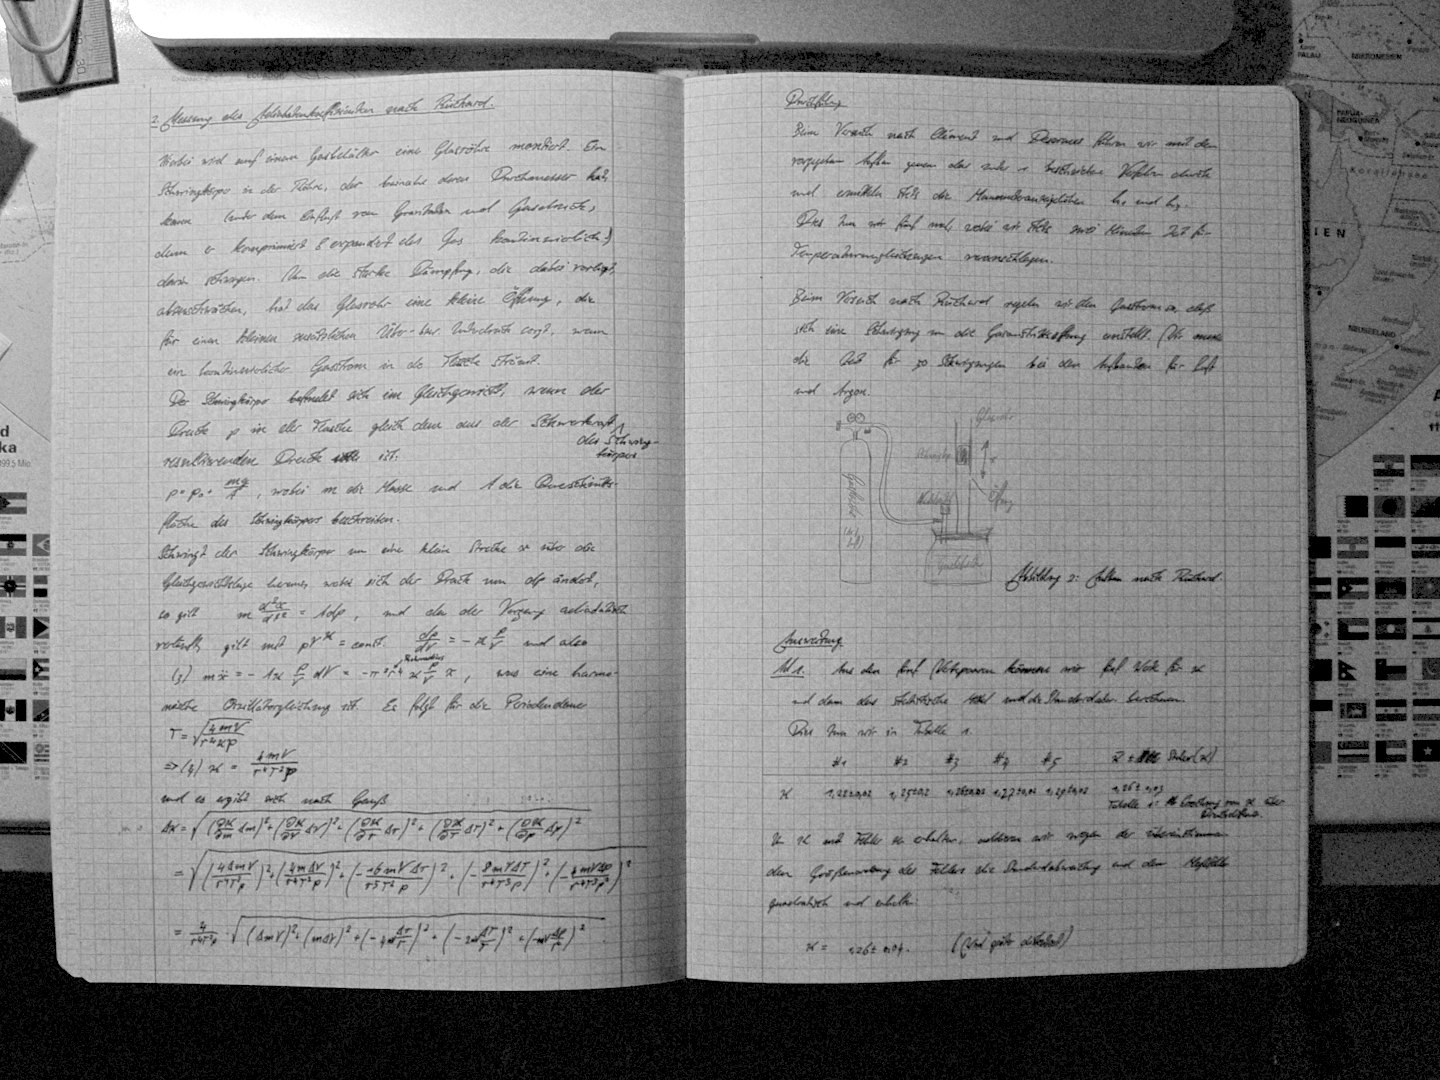 2. Messung des Adiabatenkoeffizienten nach Rüchard.
Hierbei wird auf einen Gasbehälter eine Glasröhre montiert. Ein
Schwingkörper in der Röhre, der beinahe deren Durchmesser hat,
kann unter dem Einfluß von Gravitation und Gasdruck,
denn er komprimiert & expandiert das Gas kontinuierlich,
darin schwingen. Um die starke Dämpfung, die dabei vorliegt,
abzuschwächen, hat das Glasrohr eine kleine Öffnung, die
für einen kleinen zusätzlichen Über- bzw. Unterdruck sorgt, wenn
ein kontinuierlicher Gasstrom in die Flasche strömt.
Der Schwingkörper befindet sich im Gleichgewicht, wenn der
Druck p in der Flasche gleich dem aus der Schwerkraft
des Schwing-
körpers
resultierenden Druck ist:
p = p₀ + mg/A, wobei m die Masse und A die Querschnitts-
fläche des Schwingkörpers beschreiben.
Schwingt der Schwingkörper um eine kleine Strecke x über die
Gleichgewichtslage hinweg, wobei sich der Druck um dp ändert,
so gilt m d²x/dt² = A dp, und da der Vorgang adiabatisch
verläuft, gilt mit pV^ϰ = const. dp/dV = -ϰ p/V und also
(3) mẍ = -Aϰ p/V dV = -π²r⁴ ϰ p/V x, was eine harmo-
nische Oszillatorgleichung ist. Es folgt für die Periodendauer
T = √(4mV/r⁴ϰp)
⇒ (4) ϰ = 4mV/r⁴T²p
und es ergibt sich nach Gauß
Δϰ = √((∂ϰ/∂m Δm)² + (∂ϰ/∂V ΔV)² + (∂ϰ/∂r Δr)² + (∂ϰ/∂T ΔT)² + (∂ϰ/∂p Δp)²
= √((4ΔmV/r⁴T²p)² + (4mΔV/r⁴T²p)² + (-16mVΔr/r⁵T²p)² + (-8mVΔT/r⁴T³p)² + (-4mVΔp/r⁴T²p²)²
= 4/r⁴T²p · √((ΔmV)² + (mΔV)² + (-4mV Δr/r)² + (-2mV ΔT/T)² + (-mV Δp/p)²
Durchführung
Beim Versuch nach Clément und Desormes führen wir mit dem
vorgegebenen Aufbau genau das unter 1 beschriebene Verfahren durch
und ermitteln stets die Manometeranzeigehöhen h₁ und h₃.
Dies tun wir fünf mal, wobei wir stets zwei Minuten Zeit für
Temperaturangleichungen veranschlagen.
Beim Versuch nach Rüchard regeln wir den Gasstrom so, daß
sich eine Schwingung um die Gasaustrittsöffnung einstellt. Wir messen
die Zeit für 50 Schwingungen bei den Aufbauten für Luft
und Argon.
Glasrohr
Schwingkörper
x
Öffnung
Gasflasche
Abbildung 2: Aufbau nach Rüchard.
Auswertung
Ad 1. Aus den fünf Wertepaaren können wir fünf Werte für ϰ
und dann das statistische Mittel und die Standardabw. berechnen.
Dies tun wir in Tabelle 1
#1 #2 #3 #4 #5
ϰ 1,25±0,02 1,26±0,02 1,27±0,02 1,26±0,03
Tabelle 1:
ϰ und Fehler zu erhalten, addieren wir wegen der übereinstimmen-
den Größenordnung des Fehlers die Standardabweichung und den Meßfehler
quadratisch und erhalten:
ϰ = 1,26 ± 0,04.
PALAU
MIKRONESIEN
PAPUA-
NEUGUINEA
Korallensee
IEN
NEUSEELAND